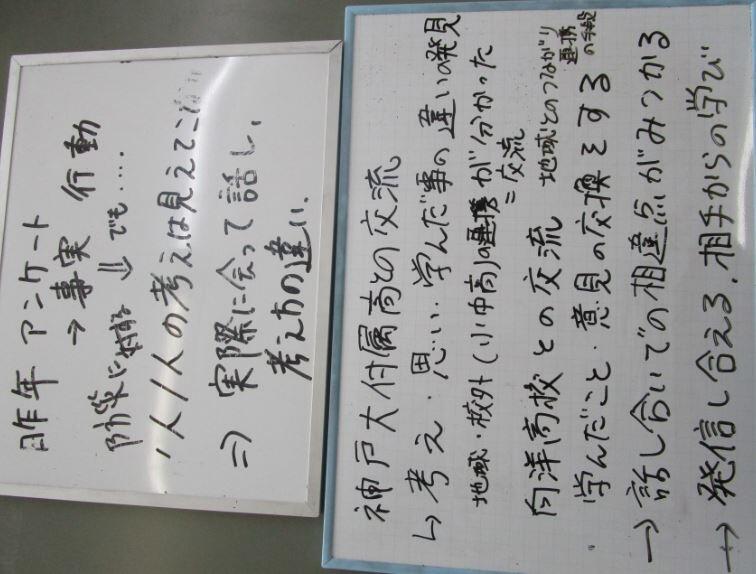 昨年 アンケート
→ 事実 行動
防災に対する ⇓ でも‥‥
1人1人の考えは見えてこない
⇒ 実際に会って話し、
考え方の違い.
神戸大付属高との交流
↳ 考え・思い・学んだ事の違いの発見
地域・校外(小中高)の連携が分かった
=交流
向洋高校との交流 地域とのつながり
連携の手段
学んだこと・意見の交換をする
→ 話し合いでの相違点がみつかる
→ 発信し合える.相手からの学び